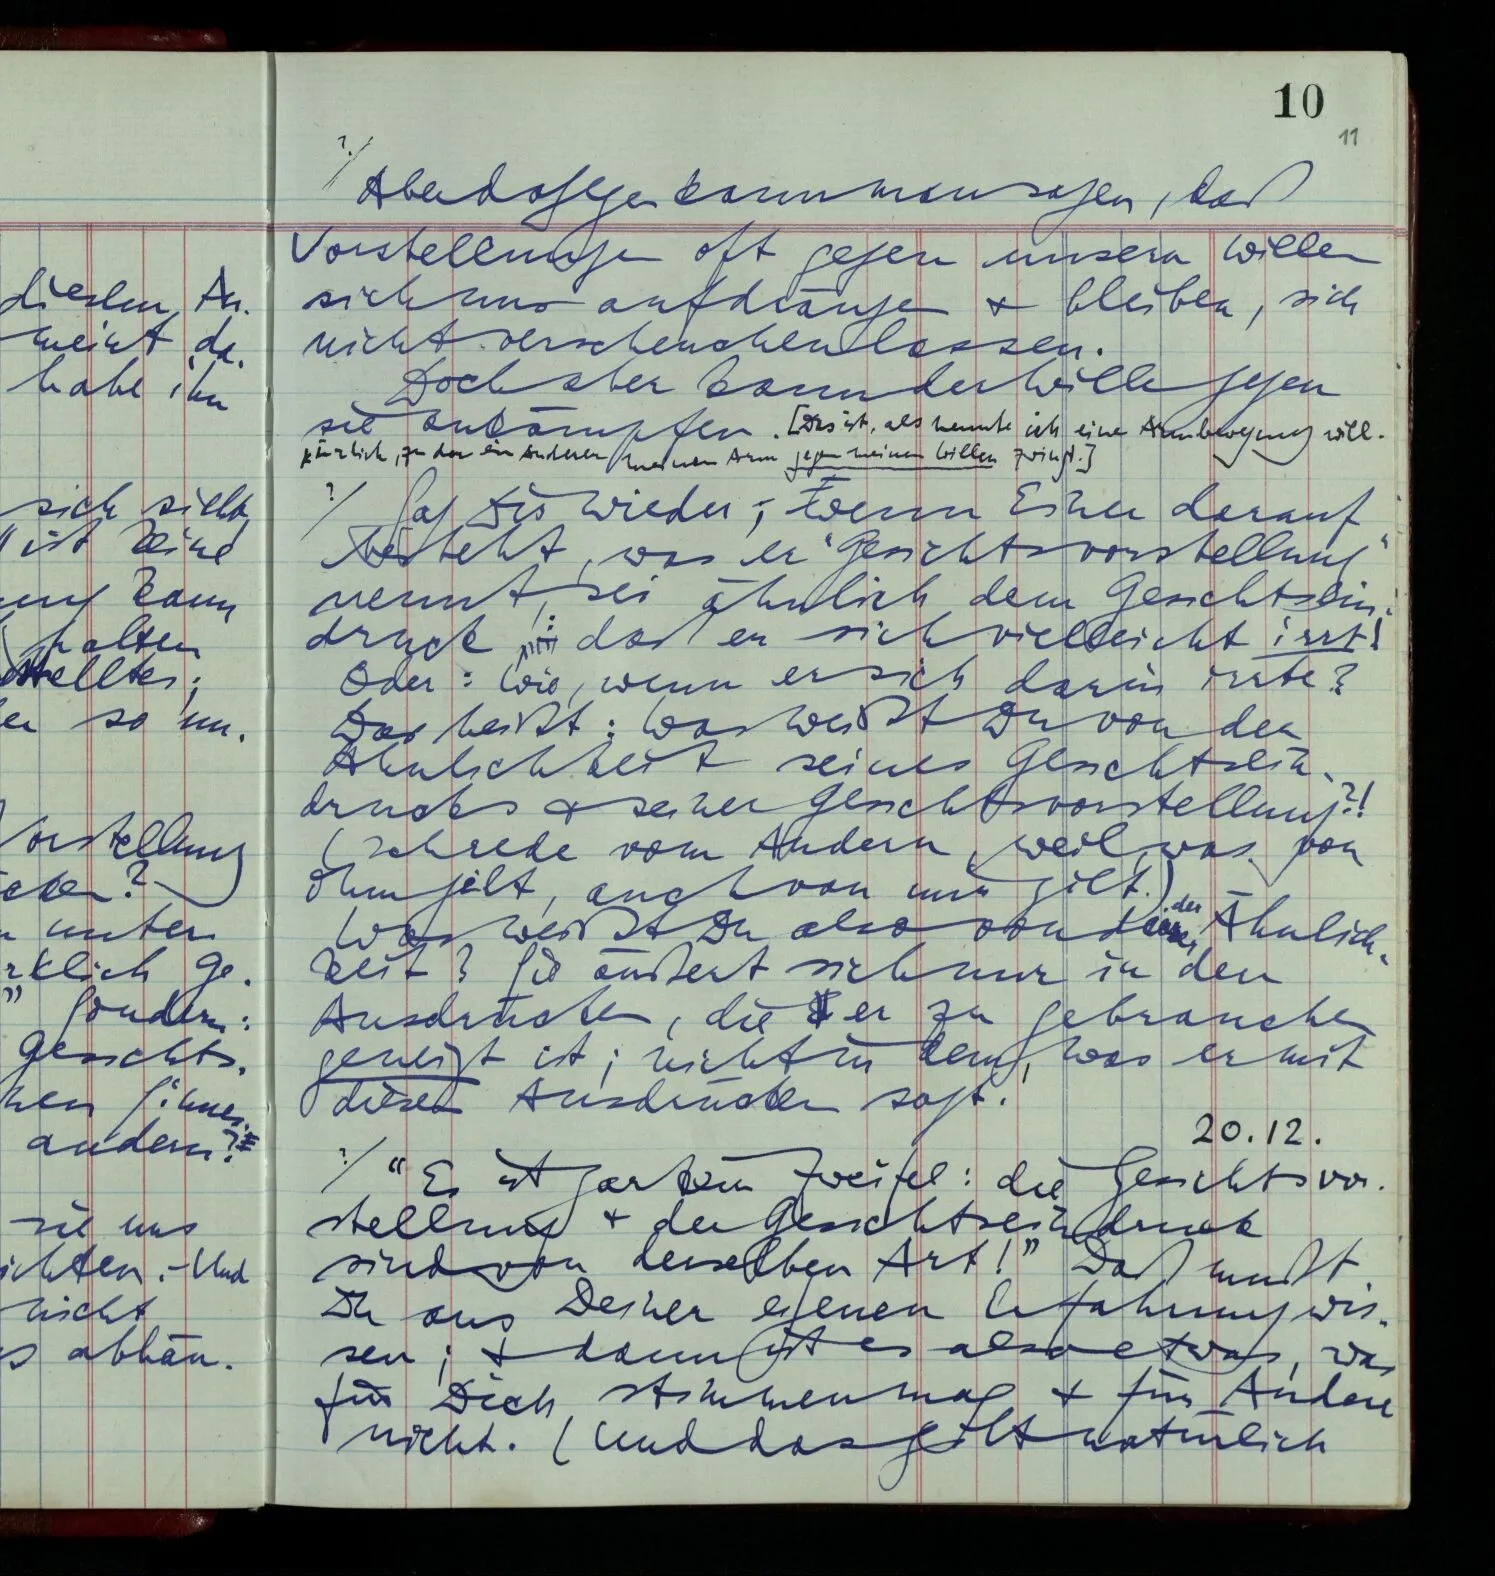 10
11
dieselen An-
meint, da-
habe ihn
sich sieht
ist keine
ung kann
halten
stellter;
er so un-
Vorstellung
cken?
unter
rklich ge-
” sondern:
Gesichts-
hen Sinnes-
andern?
sie uns
ichten. – Und
nicht
s abhän-
?/
Aber dagegen kann man sagen, daß
Vorstellungen oft gegen unsern Willen
sich uns aufdrängen & bleiben, sich
nicht verscheuchen lassen.
Doch aber kann der Wille gegen
sie ankämpfen. [Das ist, als nennte ich eine Armbewegung will-
kürlich, zu der ein Anderer meinen Arm gegen meinen Willen zwingt.]
?/ Sag Dir wieder; wenn Einer darauf
besteht, was er “Gesichtsvorstellung”
nennt, sei ähnlich dem Gesichtsein-
druck: daß er sich vielleicht irrt!
Oder: Wie, wenn er sich darin irrte?
Das heißt: Was weißt Du von der
Ähnlichkeit seines Gesichtsein-
drucks & seiner Gesichtsvorstellung?!
(Ich rede vom Andern, weil, was von
ihm gilt, auch von mir gilt.)
Was weißt Du also von der Ähnlich-
keit? Sie äußert sich nur in den
Ausdrücken, die er zu gebrauchen
geneigt ist; nicht in dem, was er mit
diesen Ausdrücken sagt.
20.12.
?/ “Es ist gar kein Zweifel: die Gesichtsvor-
stellung & der Gesichtseindruck
sind von derselben Art!” Daß mußt
Du aus Deiner eigenen Erfahrung wis-
sen; & dann ist es also etwas, was
für Dich stimmen mag & für Andere
nicht. (Und das gilt natürlich